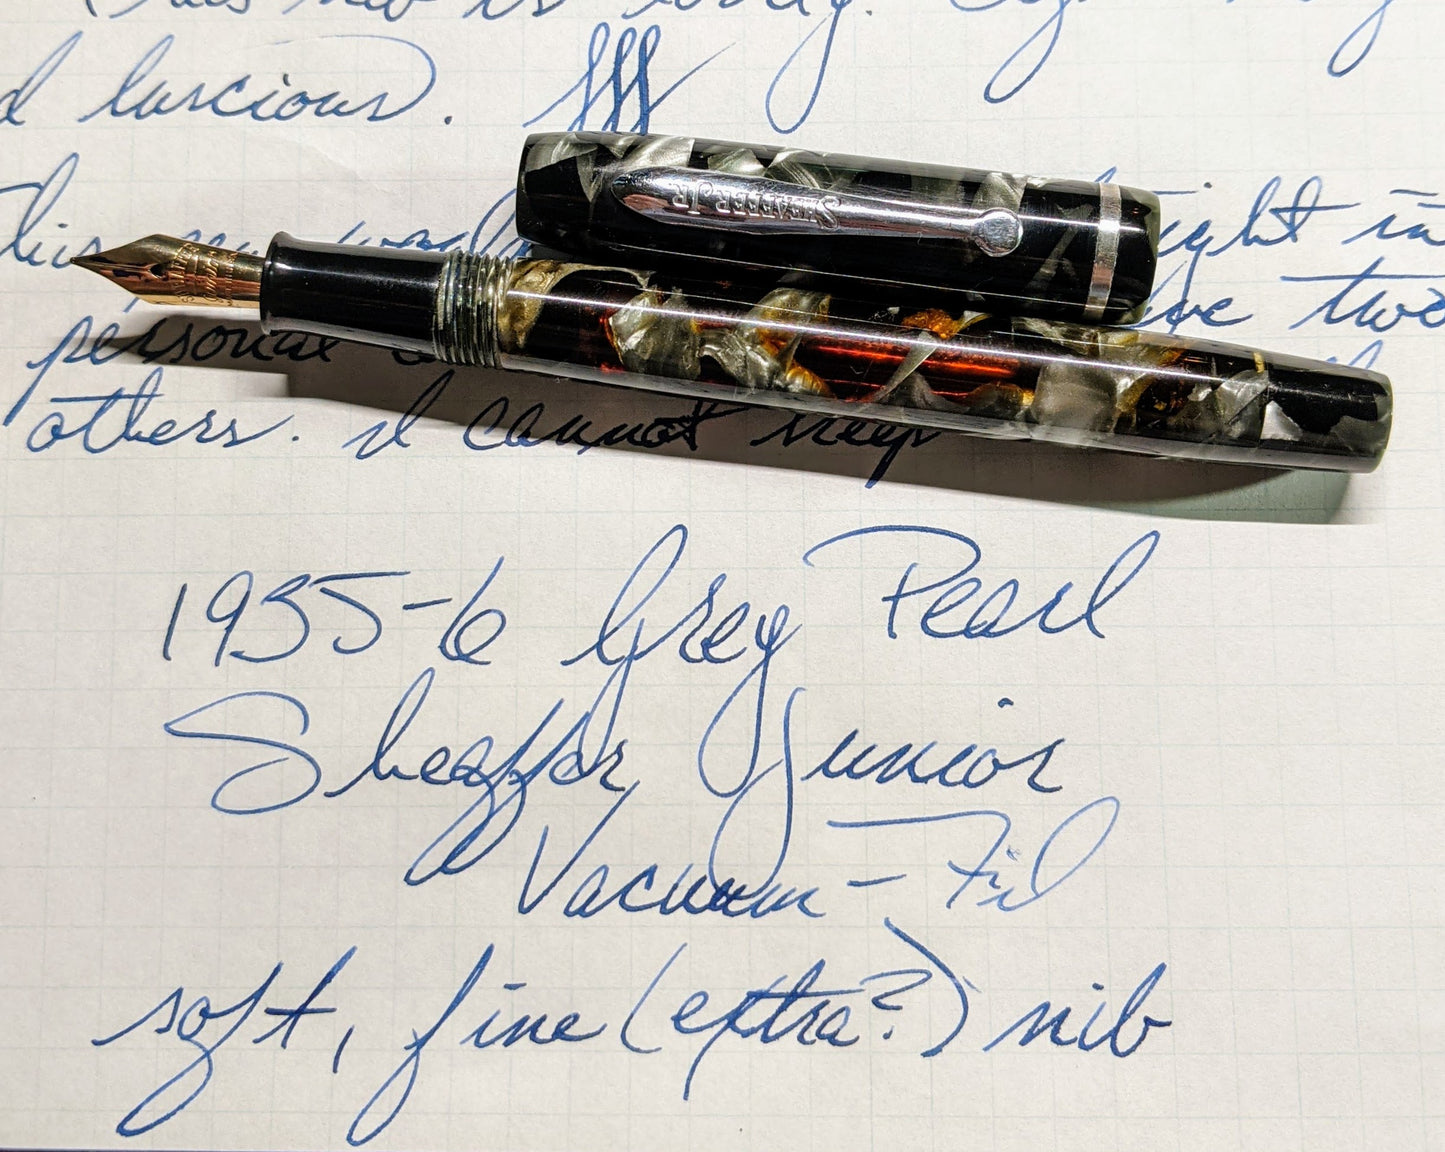 This nib is lovely.
d luscious. fff
This
ight in
personal
two
others. I cannot keep
SHEAFFER JR.
1935-6 Grey Pearl
Sheaffer Junior
Vacuum-Fil
soft, fine (extra?) nib